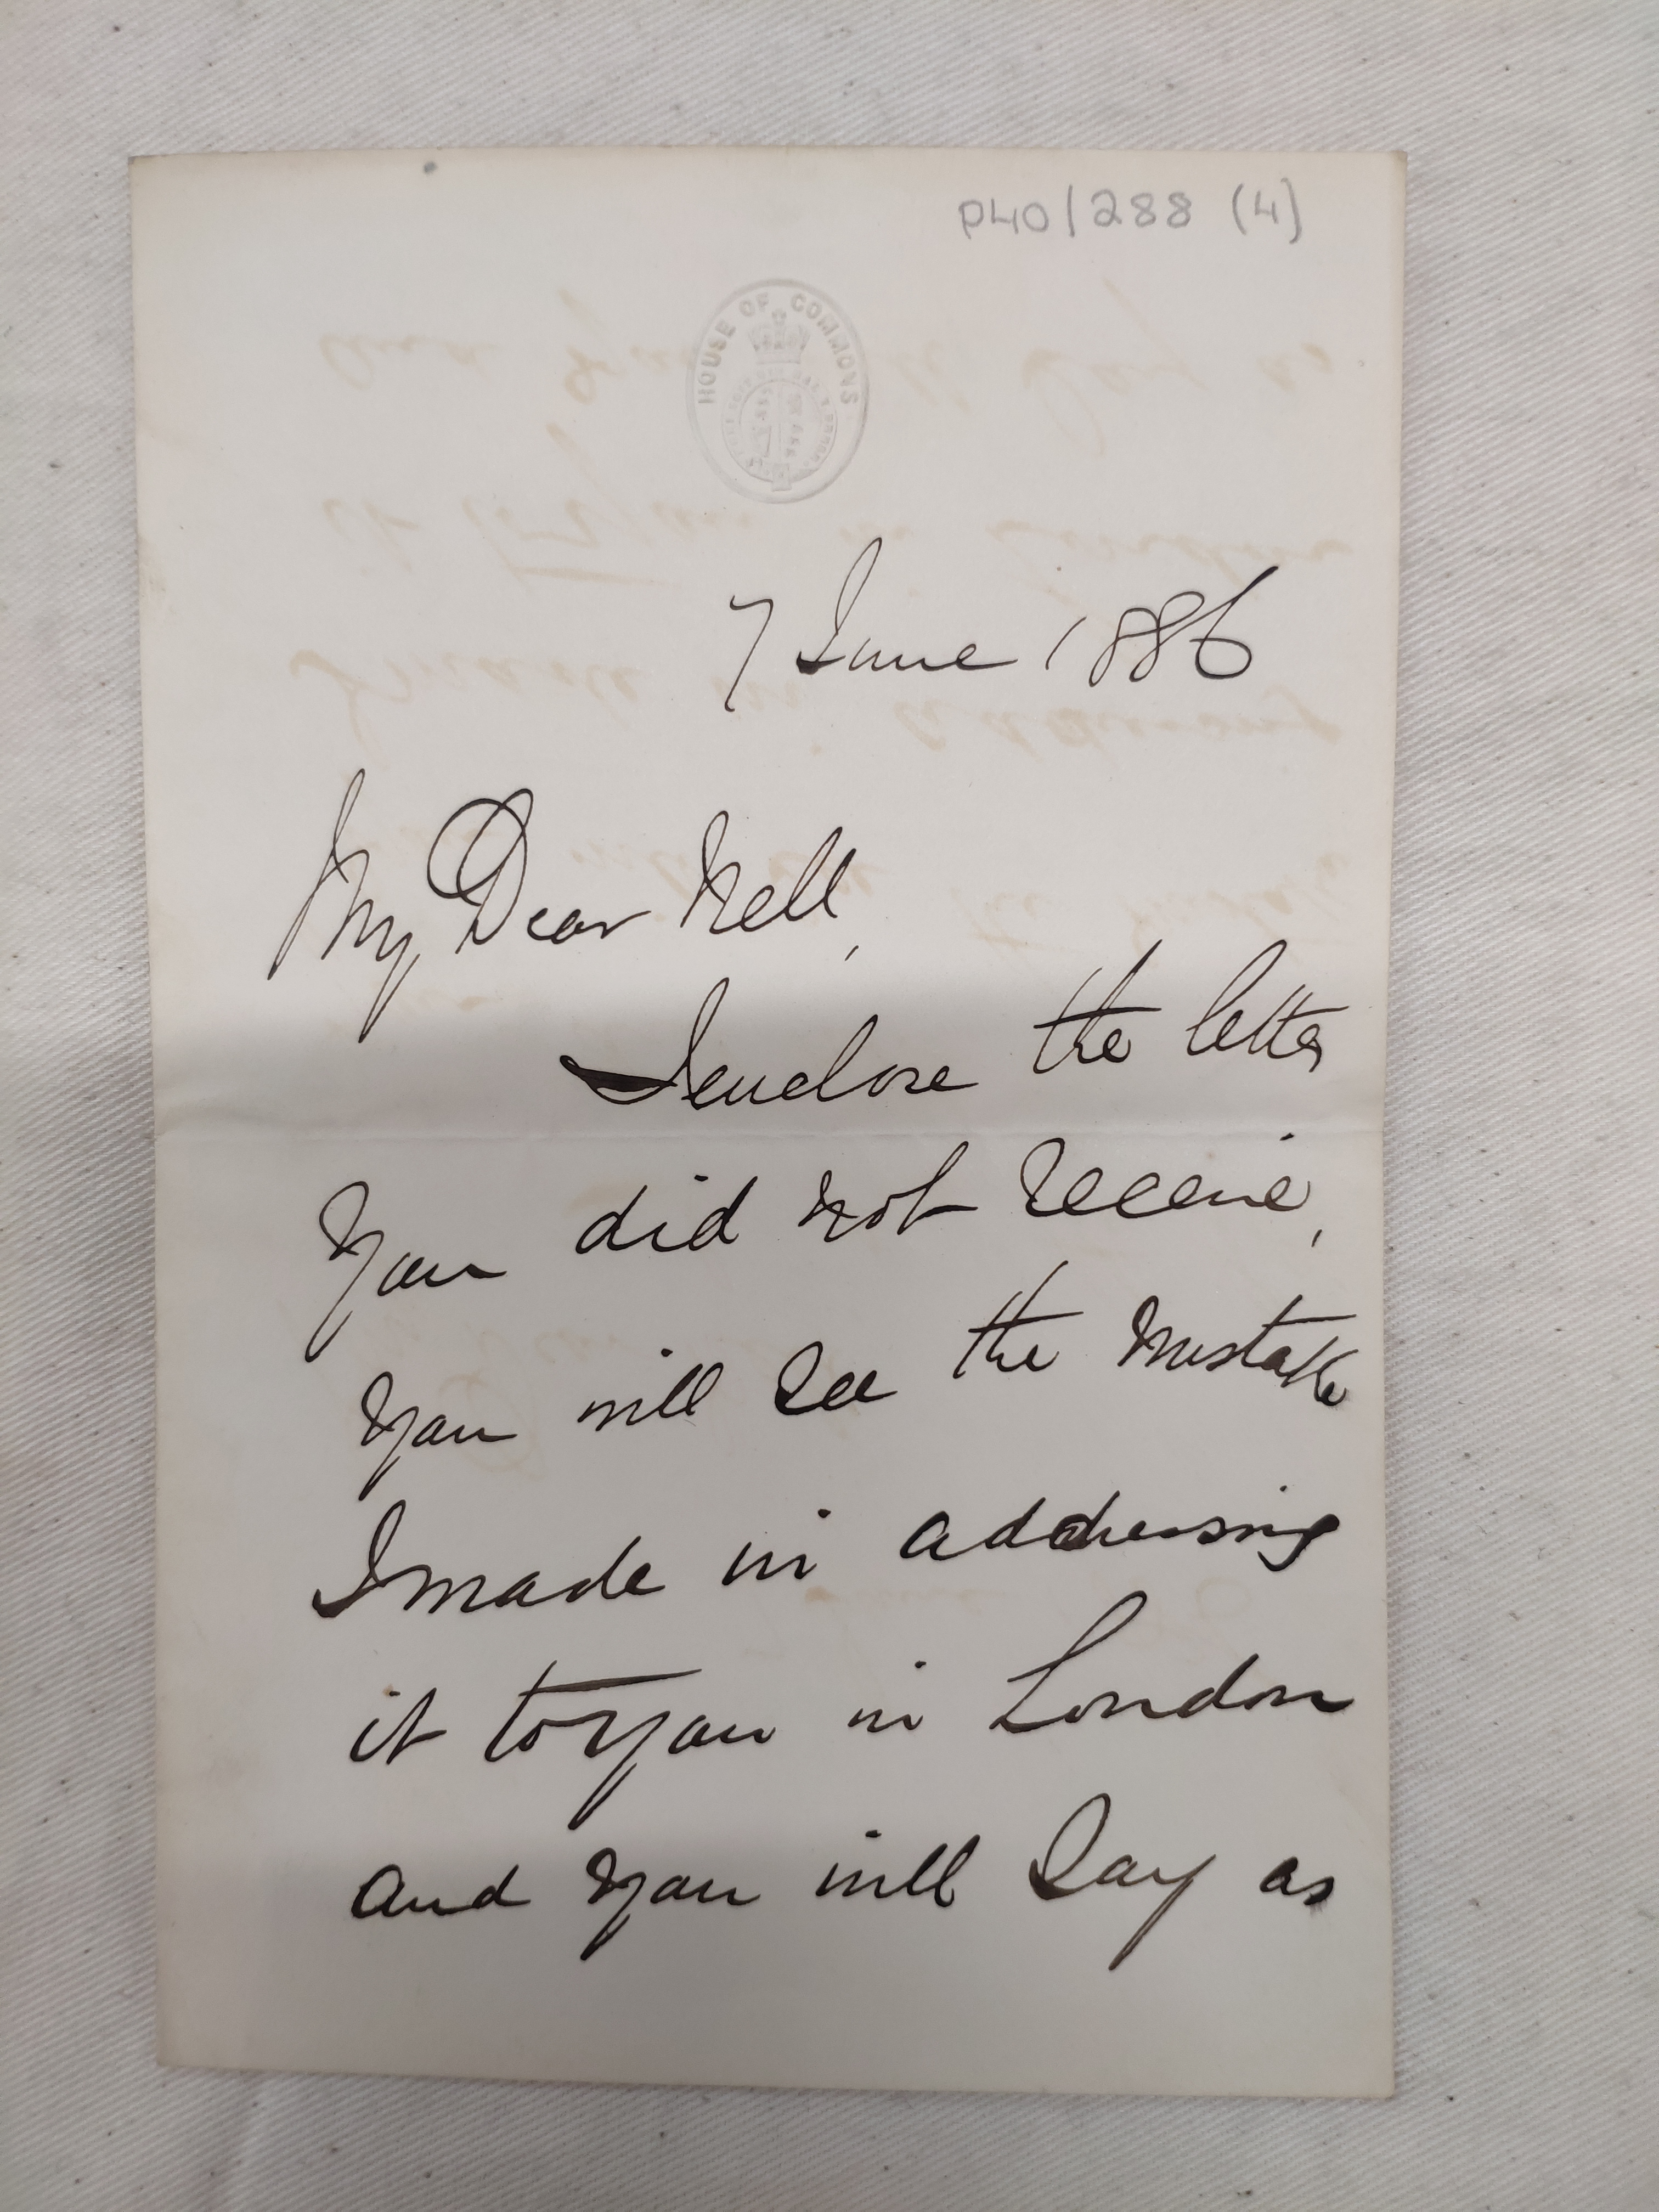 P40/288 (4)
HOUSE OF COMMONS
7 June 1886
My Dear Nell,
I enclose the letter
you did not receive,
you will see the mistake
I made in addressing
it to you in London
and you will say as